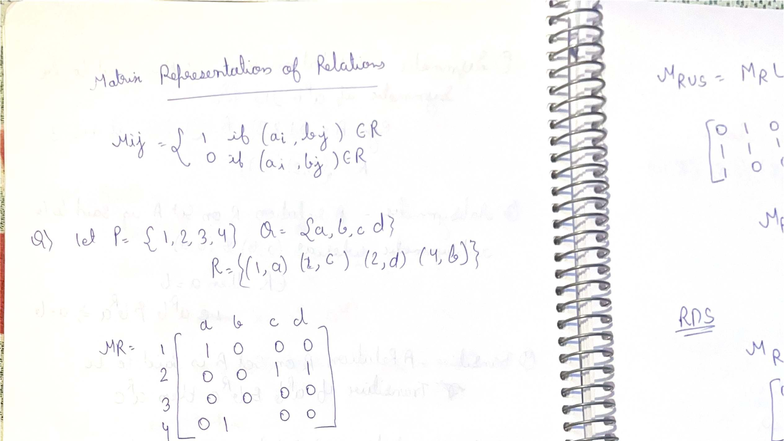 Matrix Representation of Relations
Mij = { 1 if (ai, bj) ∈R
0 if (ai, bj) ∈R
Q) let P= {1,2,3,4} Q= {a,b,c d}
R={(1,a) (2,c) (2,d) (4,b)}
a b c d
MR= 1 [ 1 0 0 0
2 0 0 1 1
3 0 0 0 0
4 0 1 0 0 ]
MRUS = MR
[ 0 1 0
1 1 1
1 0 0
M
RΠS
MR